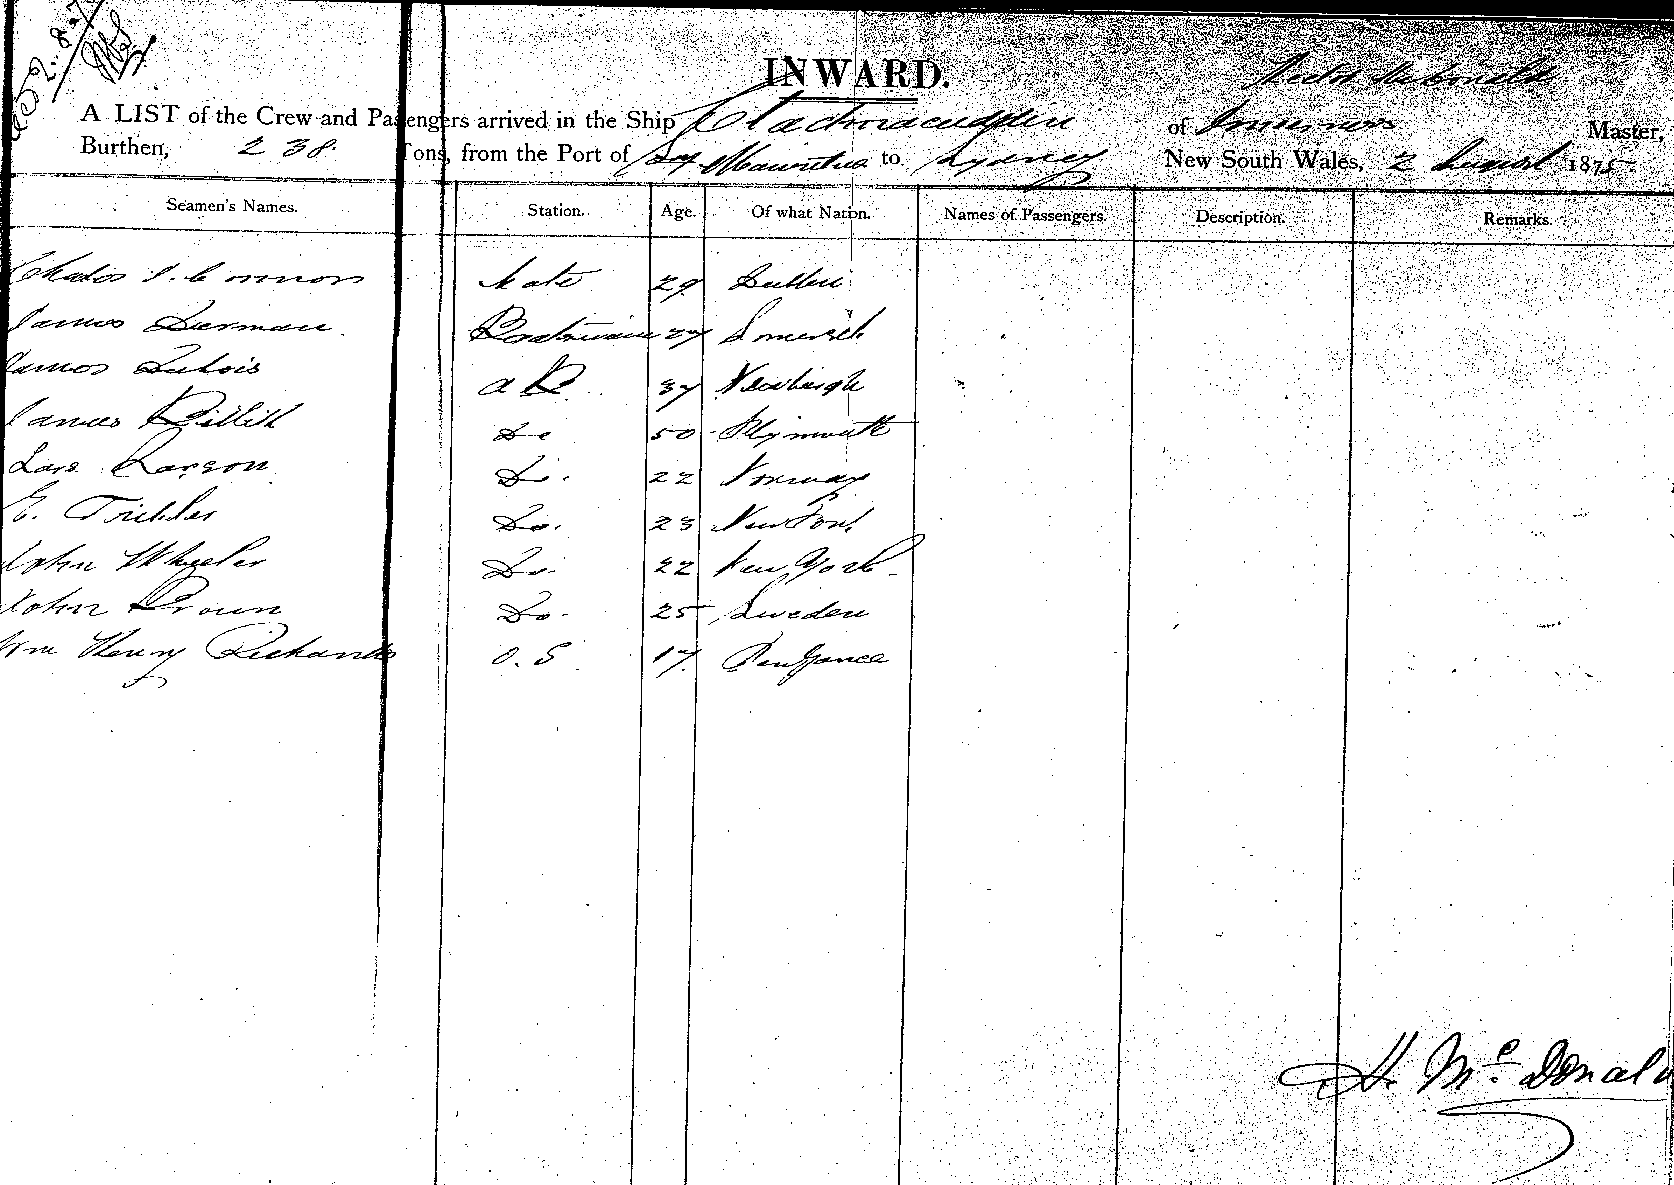 INWARD.
A LIST of the Crew and Passengers arrived in the Ship Clachnacuddin of Inverness Master,
Burthen, 238 Tons, from the Port of Mauritius to Sydney New South Wales, 2 August 1875
Seamen's Names. Station. Age. Of what Nation. Names of Passengers. Description. Remarks.
Mate 29
James Boatswain 27 Somerset
James A B 37 Newburgh
James Do 50 Plymouth
Lars Larson Do. 22 Norway
E. Do. 23 New York
John Wheeler Do. 22 New York
John Brown Do. 25 Sweden
Wm Henry Richards O. S. 17. Penzance
McDonald